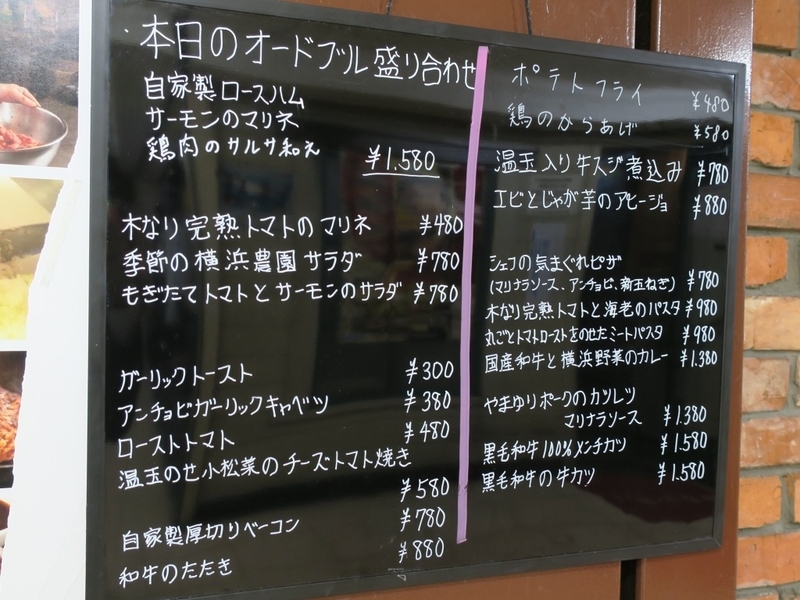 本日のオードブル盛り合わせ
自家製ロースハム
サーモンのマリネ
鶏肉のサルサ和え
¥1,580
木なり完熟トマトのマリネ ¥480
季節の横浜農園サラダ ¥780
もぎたてトマトとサーモンのサラダ ¥780
ガーリックトースト ¥300
アンチョビガーリックキャベツ ¥380
ローストトマト ¥480
温玉のせ小松菜のチーズトマト焼き
¥580
自家製厚切りベーコン ¥780
和牛のたたき ¥880
ポテトフライ ¥480
鶏のからあげ ¥580
温玉入り牛スジ煮込み ¥780
エビとじゃが芋のアヒージョ ¥880
シェフの気まぐれピザ
(マリナラソース、アンチョビ、新玉ねぎ) ¥780
木なり完熟トマトと海老のパスタ ¥980
丸ごとトマトローストをのせたミートパスタ ¥980
国産和牛と横浜野菜のカレー ¥1.380
やまゆりポークのカツレツ
マリナラソース ¥1.380
黒毛和牛100%メンチカツ ¥1.580
黒毛和牛の牛カツ ¥1.580